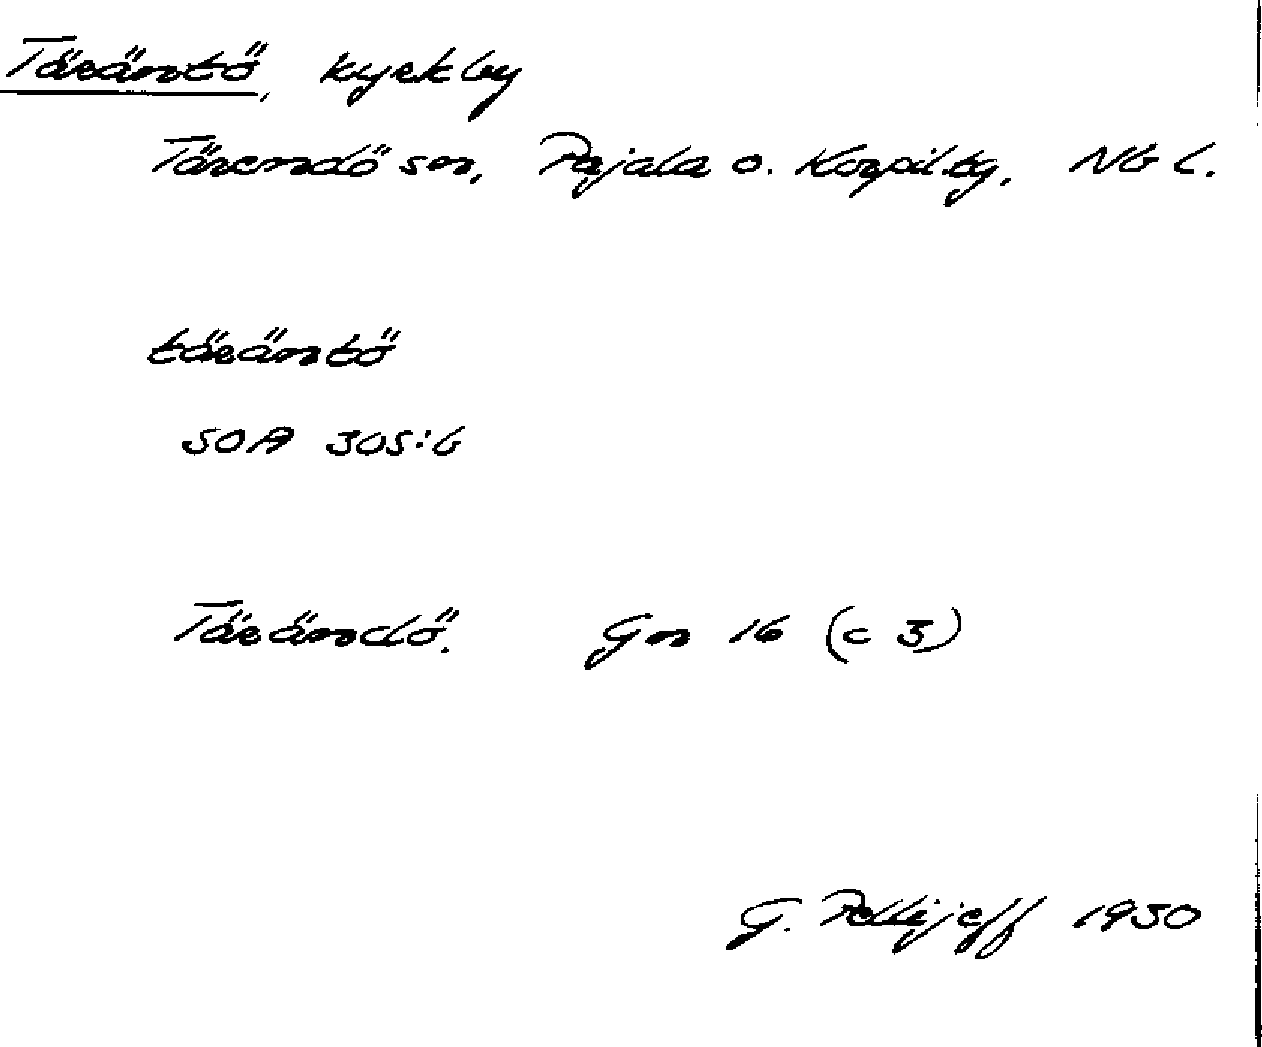 Täräntö, kyrkby
Tärendö sn, Pajala o. Korpil. tg, Nb l.
täräntö
SOA 305:6
Tärändö. Gn 16 (c 3)
G. Pellijeff 1950